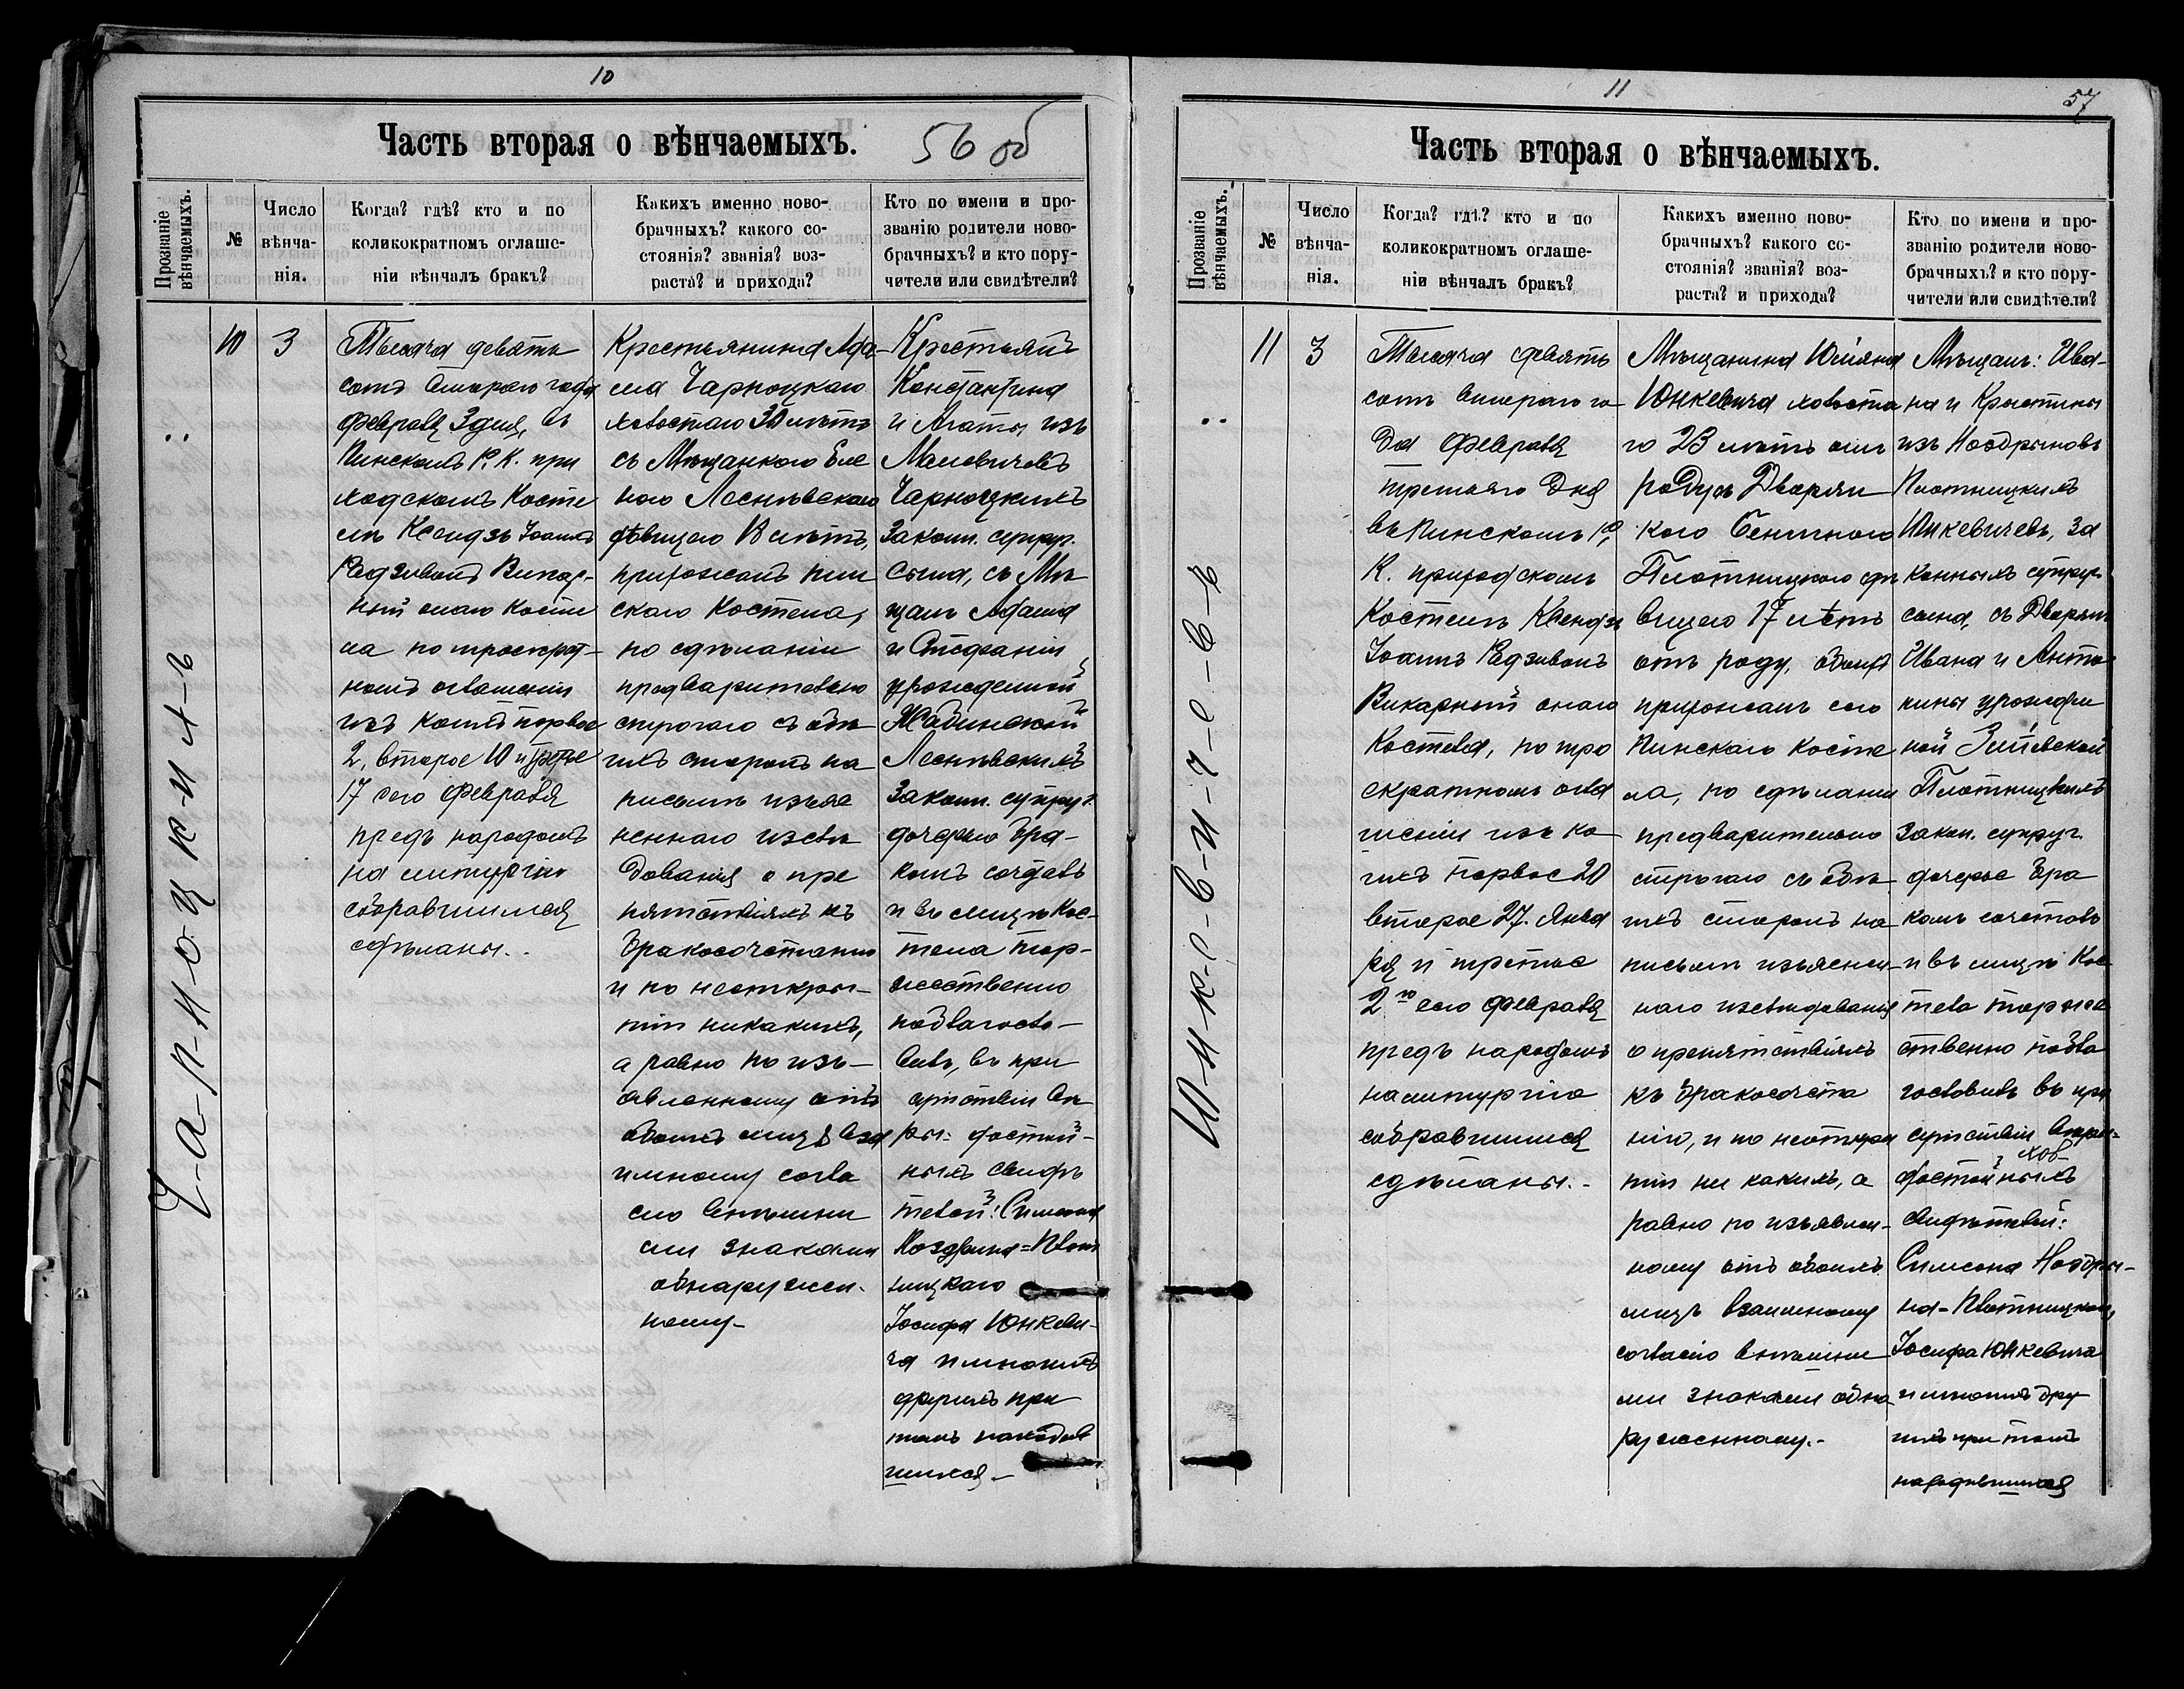 10
Часть вторая о вѣнчаемыхъ.
56 об
Прозваніе вѣнчаемыхъ.
№
Число вѣнча-нія.
Когда? гдѣ? кто и по
коликократномъ оглаше-
ніи вѣнчалъ бракъ?
Какихъ именно ново-
брачныхъ? какого со-
стоянія? званія? воз-
раста? и прихода?
Кто по имени и про-
званію родители ново-
брачныхъ? и кто пору-
чители или свидѣтели?
10
3
Тысяча девять
сотъ второго года
февраля 3 дня, въ
Пинскомъ Р. К. при
ходскомъ Косте
лѣ Ксендзъ Іоаннъ
Радзивонъ Викар-
ный онаго Косте
ла по троекрат-
номъ оглашеніи
изъ коихъ первое
2, второе 10 и третье
17 сего февраля
предъ народомъ
на литургію
собравшимся
сдѣланы..
Крестьянина Ада-
ма Чарноцкаго
холостаго 30 лѣтъ
съ Мѣщанкою Еле
ною Леснѣвскою
дѣвицею 18 лѣтъ,
прихожанъ Пин
скаго Костела,
по сдѣланіи
предварительно
строгаго съ обѣ
ихъ сторонъ на
письмѣ изъяс
неннаго изслѣ
дованія о пре
пятствіяхъ къ
бракосочетанію
и по неоткры-
тіи никакихъ,
а равно по изъ-
явленному отъ
обоихъ лицъ вза
имному согла
сію внѣшни
ми знаками
обнаружен-
ному-
Крестьянъ
Константина
и Агаты изъ
Чарноцкихъ
Закон. супруг.
сына, съ Мѣ
щан. Адама
и Стефаніи
урожденной
Жабинской
Леснѣвскихъ
Закон. супруг.
дочерью бра-
комъ сочеталъ
и въ лицѣ Кос-
тела тор-
жественно
поблагосло-
вилъ, въ при
сутствіи вѣ
ры- достой-
ныхъ свидѣ
телей: Симеона
Ноздрина=Плот
ницкаго
Іосифа Юнкеви-
ча и многихъ
другихъ при
томъ находив
шихся-
Ч-а-р-н-о-ц-к-и-й-ъ
11
57
Часть вторая о вѣнчаемыхъ.
Прозваніе вѣнчаемыхъ.
№
Число вѣнча-нія.
Когда? гдѣ? кто и по
коликократномъ оглаше-
ніи вѣнчалъ бракъ?
Какихъ именно ново-
брачныхъ? какого со-
стоянія? званія? воз-
раста? и прихода?
Кто по имени и про-
званію родители ново-
брачныхъ? и кто пору-
чители или свидѣтели?
11
3
Тысяча девять
сотъ второго го
да февраля
третьяго дня
въ Пинскомъ Р.
К. приходскомъ
Костелѣ Ксендзъ
Іоаннъ Радзивонъ
Викарный онаго
Костела, по тро
екратномъ огла
шеніи изъ ко
ихъ первое 20
второе 27. Янва
ря и третье
2го сего февраля
предъ народомъ
на литургію
собравшимся
сдѣланы.-
Мѣщанина Юліяна
Юнкевича холоста
го 23 лѣтъ отъ
роду съ Дворян
кою
Плотницкою дѣ
вицею 17 лѣтъ
отъ роду, обоихъ
прихожанъ сего
Пинскаго Косте
ла, по сдѣланіи
предварительно
строгаго съ обѣ
ихъ сторонъ на
письмѣ изъяснен-
наго изслѣдованія
о препятствіяхъ
къ бракосочета
нію, и по неоткры
тіи ни какихъ, а
равно по изъявлен-
ному отъ обоихъ
лицъ взаимному
согласію внѣшни
ми знаками обна
руженному.-
Мѣщан: Ива-
на и Кристины
изъ Ноздриновъ
Плотницкихъ
Юнкевичевъ, за
конныхъ супруг.
сына, съ Дворян
Ивана и Анто
нины урожден
ной
Плотницкихъ
Закон. супруг.
дочерью бра
комъ сочеталъ
и въ лицѣ Кос
тела торже
ственно побла
гословилъ въ при
сутствіи вѣры-
достойныхъ
свидѣтелей:
Симеона Ноздри-
на-Плотницкаго,
Іосифа Юнкевича
и многихъ дру
гихъ при томъ
находившихся
Ю-н-к-е-в-и-ч-е-в-ъ